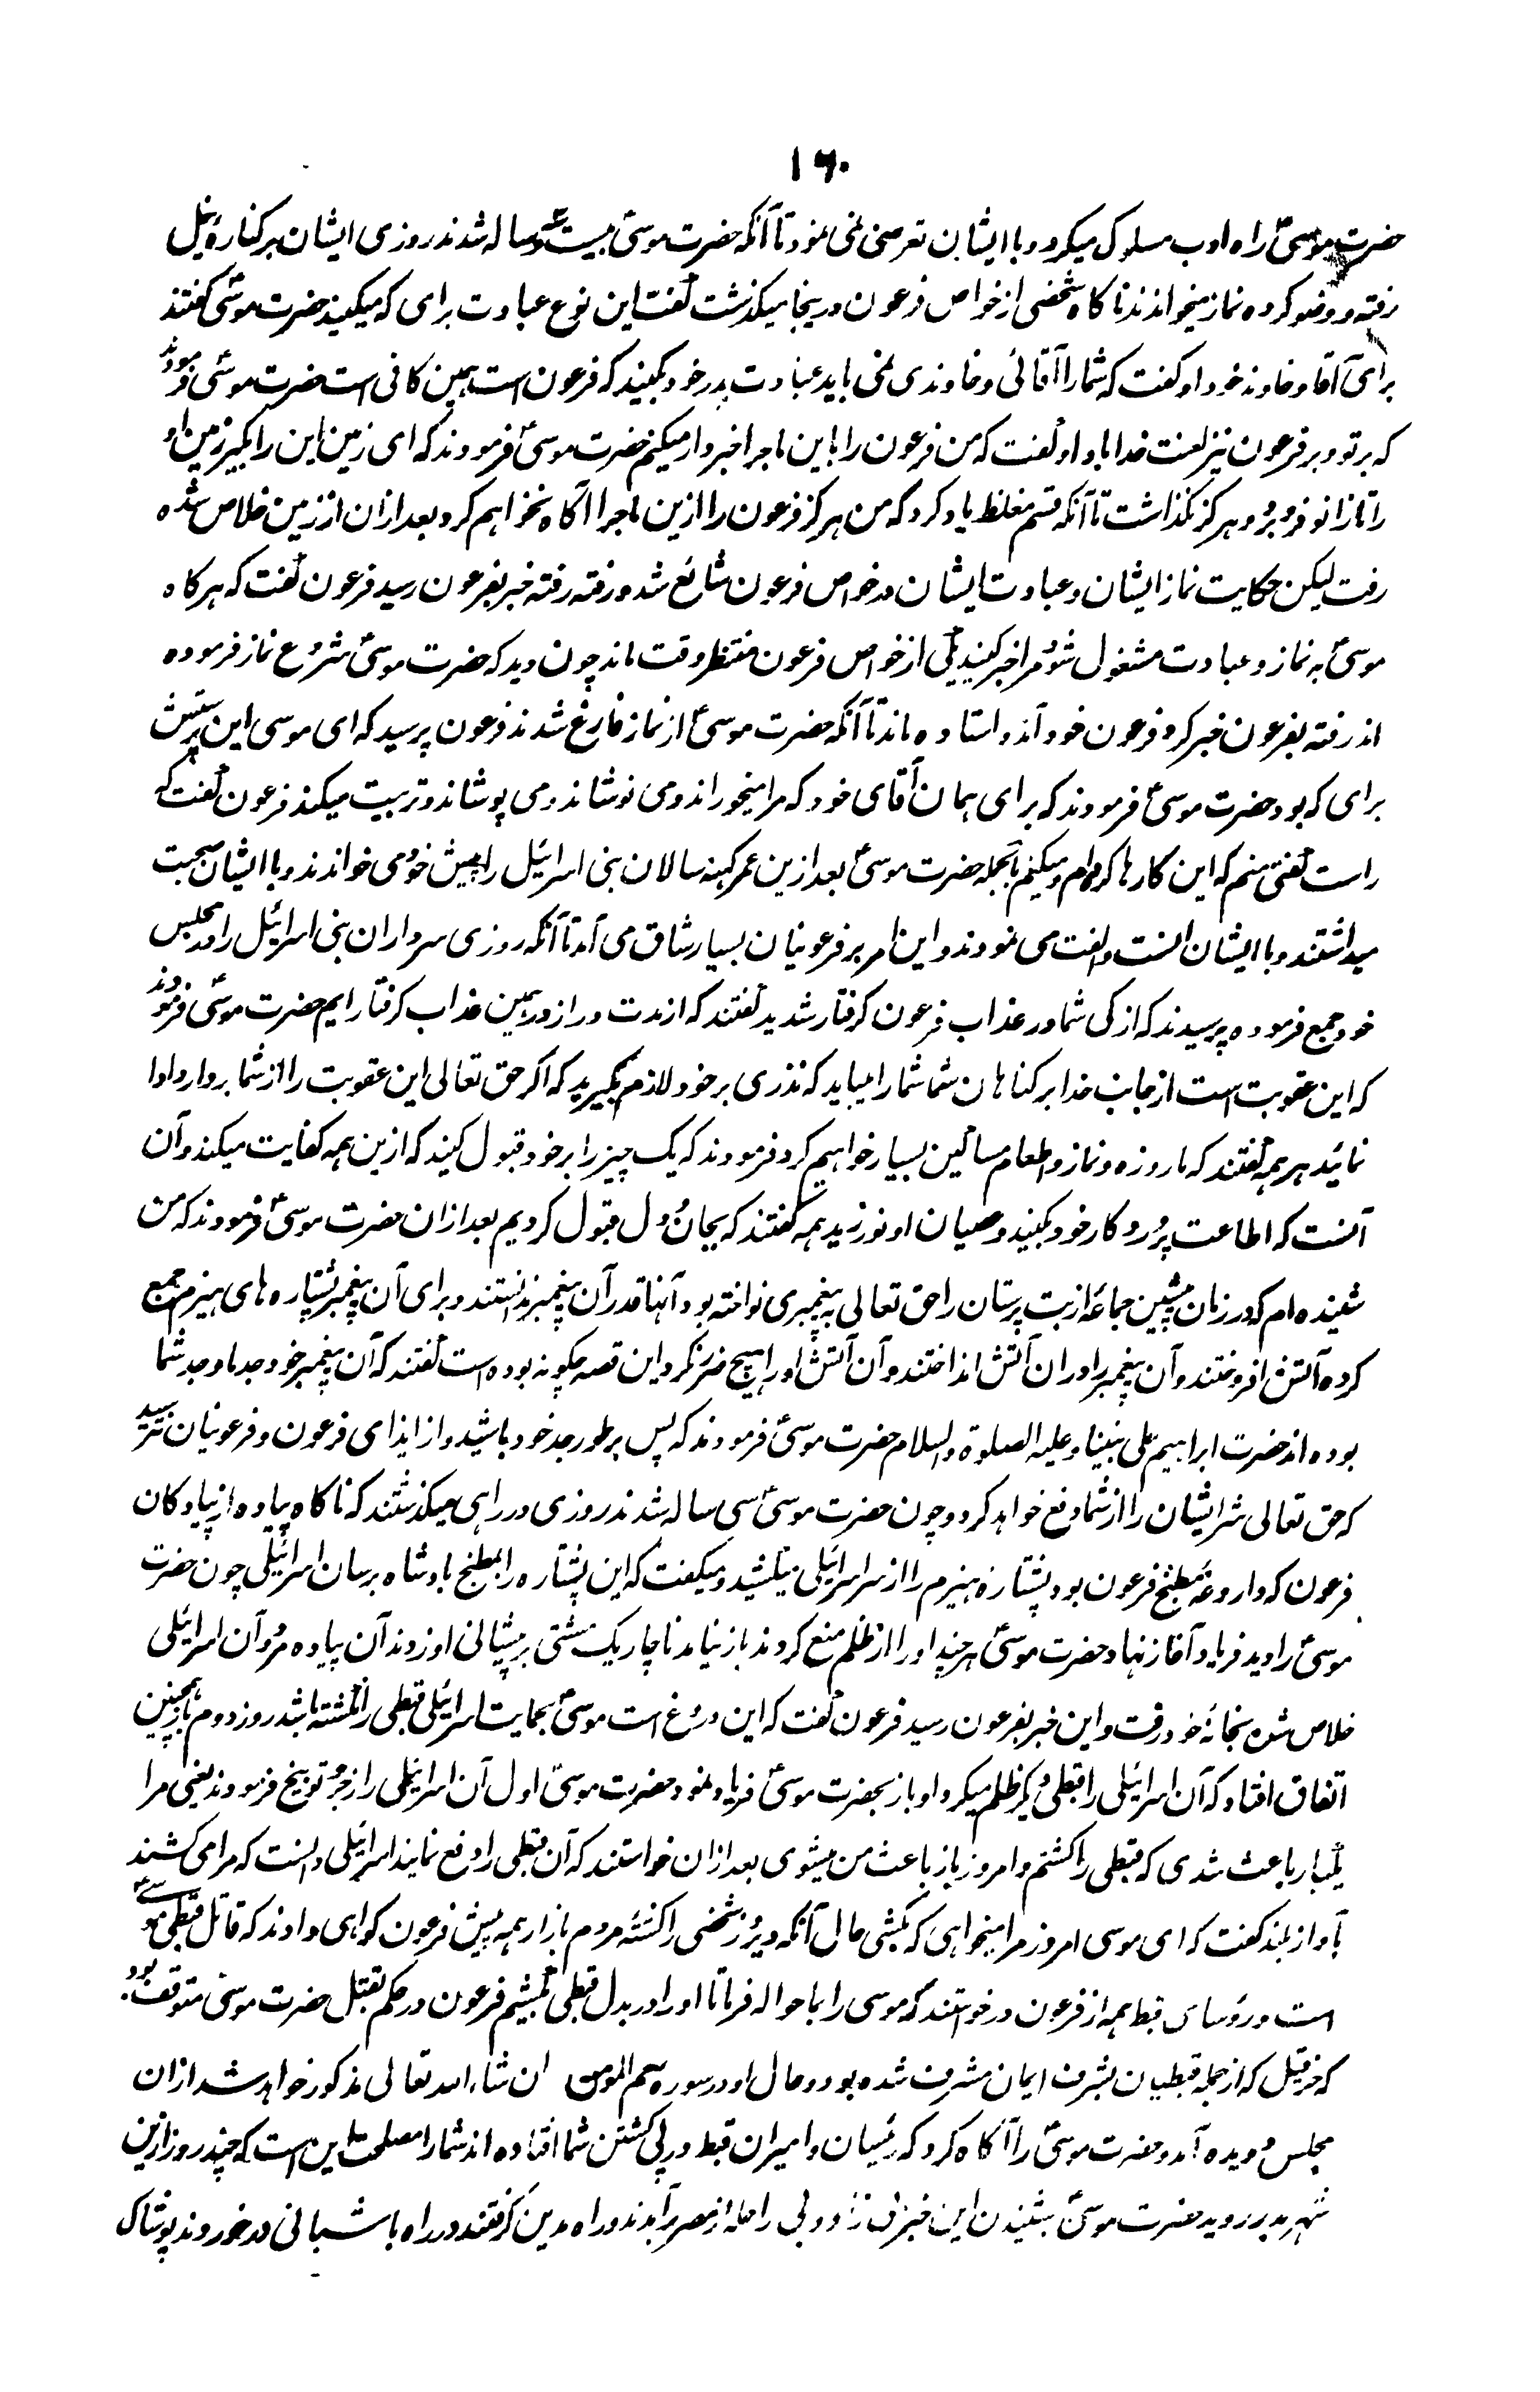 ۱۶۰
حضرت موسیٰؑ راہ ادب مسلوک میکرد و با ایشان تعرضی نمی نمود تا آنکہ حضرت موسیٰؑ بیست و سالہ شدند روزی ایشان بر کنارۂ نیل
رفتہ و وضو کردہ نماز میخواندند ناکاہ شخصی از خواص فرعون درینجا میکذشت کفت این نوع عبادت برای کہ میکنید حضرت موسیٰؑ کفتند
برای آقا و خاوند خود او کفت کہ شما را آقائی و خاوندی نمی باید عبادت پدر خود بکنید کہ فرعون است ہمین کافی است حضرت موسیٰؑ فرمودند
کہ بر تو و بر فرعون نیز لعنت خدا باد او کفت کہ من فرعون را باین ماجرا خبردار میکنم حضرت موسیٰؑ فرمودند کہ ای زمین این را بکیر زمین او
را تا زانو فرو برد و ہرکز نکذاشت تا آنکہ قسم مغلظ یاد کرد کہ من ہرکز فرعون را ازین ماجرا آکاہ نخواہم کرد بعد ازان از زمین خلاص شدہ
رفت لیکن حکایت نماز ایشان و عبادت ایشان در خواص فرعون شائع شد و رفتہ رفتہ خبر بفرعون رسید فرعون کفت کہ ہرکاہ
موسیٰؑ بہ نماز و عبادت مشغول شود مرا خبر کنید یکی از خواص فرعون منتظر وقت ماند چون دید کہ حضرت موسیٰؑ شروع نماز فرمودہ
اند رفتہ بفرعون خبر کرد فرعون خود آمد و استادہ ماند تا آنکہ حضرت موسیٰؑ از نماز فارغ شدند فرعون پرسید کہ ای موسی این پرستش
برای کہ بود حضرت موسیٰؑ فرمودند کہ برای ہمان آقای خود کہ مرا میخوراند و می نوشاند و می پوشاند و تربیت میکند فرعون کفت کہ
راست کفتی منم کہ این کارہا کردہ ام و میکنم بالجملہ حضرت موسیٰؑ بعد ازین عمر کہنہ سالان بنی اسرائیل را پیش خود می خواندند و با ایشان صحبت
میداشتند و با ایشان انست و الفت می نمودند و این امر بر فرعونیان بسیار شاق می آمد تا آنکہ روزی سرداران بنی اسرائیل را در مجلس
خود جمع فرمودہ پرسیدند کہ از کی شما در عذاب فرعون کرفتار شدید کفتند کہ از مدت دراز در ہمین عذاب کرفتار ایم حضرت موسیٰؑ فرمودند
کہ این عقوبت است از جانب خدا بر کناہان شما شما را میباید کہ نذری بر خود لازم بکیرید کہ اکر حق تعالی این عقوبت را از شما بردارد ادا
نمائید ہر ہمہ کفتند کہ ما روزہ و نماز و اطعام مساکین بسیار خواہیم کرد فرمودند کہ یک چیز را بر خود قبول کنید کہ ازین ہمہ کفایت میکند و آن
آنست کہ اطاعت پروردکار خود بکنید و عصیان او نورزید ہمہ کفتند کہ بجان و دل قبول کردیم بعد ازان حضرت موسیٰؑ فرمودند کہ من
شنیدہ ام کہ در زمان پیشین جماعۂ از بت پرستان را حق تعالی بہ پیغمبری نواختہ بود آنہا قدر آن پیغمبر ندانستند و برای آن پیغمبر پشتارہ ہای ہیزم جمع
کردہ آتش افروختند و آن پیغمبر را دران آتش انداختند و آن آتش او را ہیچ ضرر نکرد این قصہ چکونہ بودہ است کفتند کہ آن پیغمبر خود جد ما و جد شما
بودہ اند حضرت ابراہیم علی نبینا و علیہ الصلوۃ والسلام حضرت موسیٰؑ فرمودند کہ پس بر طور جد خود باشید و از ایذای فرعون و فرعونیان نترسید
کہ حق تعالی شر ایشان را از شما دفع خواہد کرد و چون حضرت موسیٰؑ سی سالہ شدند روزی در راہی میکذشتند کہ ناکاہ پیادہ از پیادکان
فرعون کہ داروغۂ مطبخ فرعون بود پشتارۂ ہیزم را از سر اسرائیلی میکشید و میکفت کہ این پشتارہ را بمطبخ بادشاہ برسان اسرائیلی چون حضرت
موسیٰؑ را دید فریاد آغاز نہاد حضرت موسیٰؑ ہر چند او را از ظلم منع کردند باز نیامد ناچار یک مشتی بر پیشانی او زدند آن پیادہ مرد و آن اسرائیلی
خلاص شدہ بخانۂ خود رفت و این خبر بفرعون رسید فرعون کفت کہ این دروغ است موسیٰؑ بحمایت اسرائیلی قبطی را نکشتہ باشد روز دوم باز ہمچنین
اتفاق افتاد کہ آن اسرائیلی را قبطی دیکر ظلم میکرد او باز بحضرت موسیٰؑ فریاد نمود حضرت موسیٰؑ اول آن اسرائیلی را زجر و توبیخ فرمودند یعنی مرا
یکبار باعث شدی کہ قبطی را کشتم و امروز باز باعث من میشوی بعد ازان خواستند کہ آن قبطی را دفع نمایند اسرائیلی دانست کہ مرا می کشند
بآواز بلند کفت کہ ای موسی امروز مرا میخواہی کہ بکشی حال آنکہ دیروز شخصی را کشتۂ مردم بازار ہمہ پیش فرعون کواہی دادند کہ قاتل قبطی موسیٰؑ
است و رؤسای قبط ہمہ از فرعون درخواستند کہ موسی را بما حوالہ فرما تا او را در بدل قبطی بکشیم فرعون در حکم بقتل حضرت موسیٰؑ متوقف بود
کہ خرقیل کہ از جملہ قبطیان بشرف ایمان مشرف شدہ بود و حال او در سورہ حم المومن ان شاء اللہ تعالی مذکور خواہد شد ازان
مجلس دویدہ آمد و حضرت موسیٰؑ را آکاہ کرد کہ رئیسان و امیران قبط در پی کشتن شما افتادہ اند شما را مصلحت این است کہ چند روز ازین
شہر بدر روید حضرت موسیٰؑ بشنیدن این خبر زاد و راحلہ از مصر برآمدند و راہ مدین کرفتند در راہ با شبانی درخوردند پوشاک